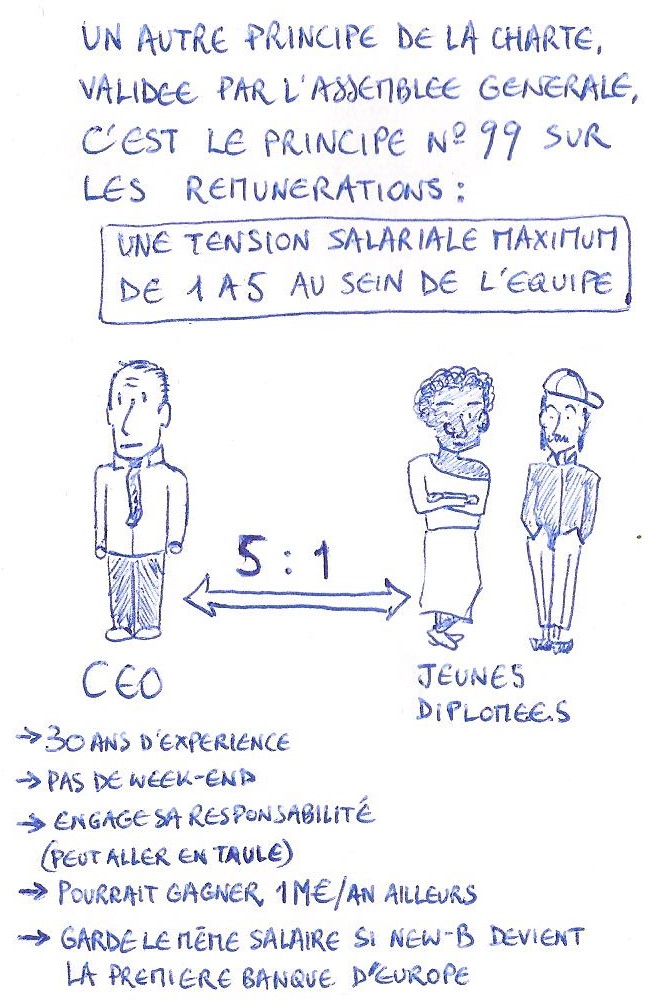 UN AUTRE PRINCIPE DE LA CHARTE,
VALIDEE PAR L'ASSEMBLEE GENERALE,
C'EST LE PRINCIPE Nº 99 SUR
LES REMUNERATIONS :
UNE TENSION SALARIALE MAXIMUM
DE 1 A 5 AU SEIN DE L'EQUIPE
5 : 1
CEO
JEUNES
DIPLOMEE.S
→ 30 ANS D'EXPERIENCE
→ PAS DE WEEK-END
→ ENGAGE SA RESPONSABILITÉ
(PEUT ALLER EN TAULE)
→ POURRAIT GAGNER 1M€/AN AILLEURS
→ GARDE LE MÊME SALAIRE SI NEW-B DEVIENT
LA PREMIERE BANQUE D'EUROPE